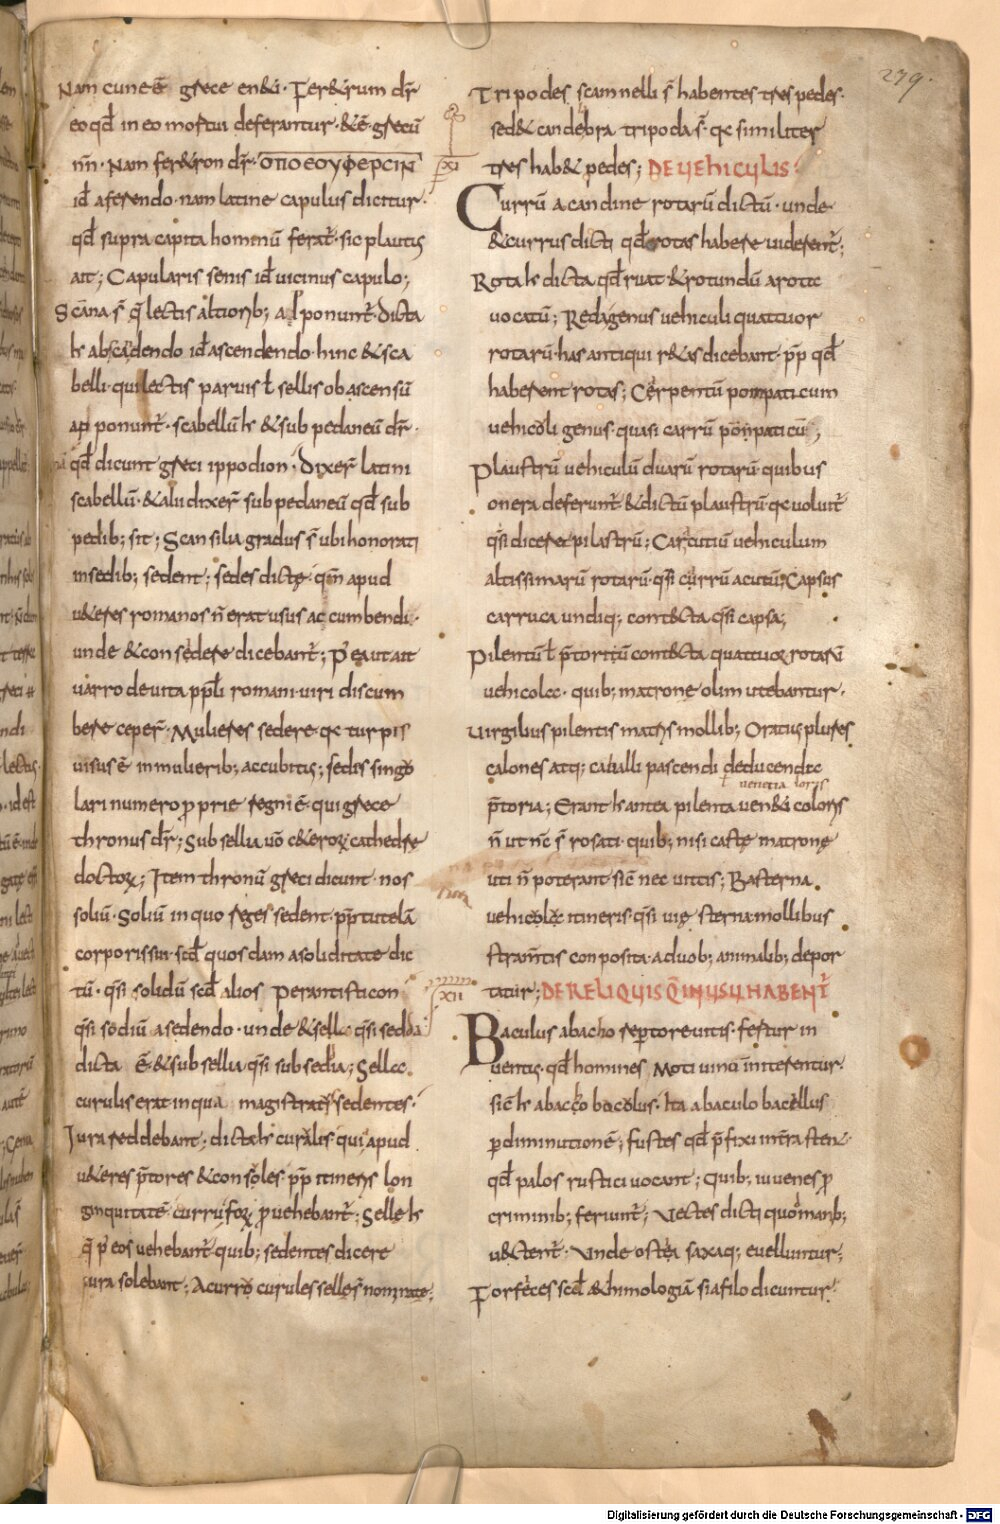 279.
Nam cune ē grece en&i· Fer&rum dr̄
eo qđ in eo mortui deferantur· &ē grecū
nn̄· Nam fer&ron dr̄· ΟΠΟΕΟΥΦΕΡCΙΝ
id̄ aferendo· nam latine capulus dicitur·
qđ supra capita hominū ferat̄· sic plautus
ait; Capularis senis id̄ uicinus capulo;
Scāna s̄ q̄ lectis altiorib; adponunt̄· dicta
h abscandendo id̄ ascendendo· hinc &sca
belli· qui lectis paruis ł sellis ob ascensū
apponunt̄· scabellū h &sub pedaneū dr̄·
qđ dicunt greci ippodion· dixer̄ latini
scabellū· &alii dixer̄ sub pedaneū qđ sub
pedib; sit; Scansilia gradus s̄ ubi honorati
in sedib; sedent; sedes dictę qm̄ apud
u&eres romanos n̄ erat usus accumbendi·
unde &consedere dicebant̄; P ea ut ait
uarro de uita pp̄li romani· uiri discum
bere ceper̄· Mulieres sedere· qa turpis
uisus ē in mulierib; accubitus; sedis singu
lari numero proprie regni ē· qui grece
thronus dr̄; Subsellia uō c&eroꝝ cathedre
doctoꝝ; Item thronū greci dicunt· nos
soliū· Soliū in quo reges sedent· pp̄ tutelā
corporis sui· scđ quosdam a soliditate dic
tū· qsi solidū scđ alios Perantisticon
qsi sodiū a sedendo· unde &sella qsi sedda
dicta ē &subsellia qsi subsedia; Sellae
curulis erat in qua magistratus sedentes·
Iura reddebant; dicta h curulis qui apud
u&eres p̄tores &consoles· pp̄ itineris lon
ginquitatē curru foꝝ prouehebant̄; Selle h
q̄ p eos uehebant̄· quib; sedentes dicere
iura solebant; A curro curules selles nominate;
Tripodes scamnelli s̄ habentes tres pedes·
sed& candebra tripoda s̄· qa similiter
XI tres hab& pedes; DE VEHICULIS·
Currū a candine rotarū dictū· unde
&currus dicti qđ rotas habere uiderent̄;
Rota h dicta qđ ruat &rotundū a rota
uocatū; Reda genus uehiculi quattuor
rotarū· has antiqui r&as dicebant· pp̄ qđ
haberent rotas; Cerpentū pompaticum
uehicoli genus· quasi carrū ponpaticū;
Plaustrū uehiculū duarū rotarū· quibus
onera deferunt̄ &dictū plaustrū· qa uoluit̄
qsi dicere pilastrū; Carcutiū uehiculum
altissimarū rotarū· qsi currū acutū; Capsus
carruca undiq; cont&cta qsi capsa;
Pilentū ł p̄toritū cont&cta quattuor rotarū
uehicolae· quib; matrone olim utebantur·
Uirgilius pilentis matris mollib; Oratius plures
calones atq; caballi pascendi deducendae
uenetia loris
p̄toria; Erant h antea pilenta uen&i coloris
n̄ ut nc̄ s̄ rosati· quib; nisi caste matronę
uti n̄ poterant· sic̄ nec uittis; Basterna·
uehicolae itineris· qsi uię sterna· mollibus
stram̄tis conposita· a duob; animalib; depor
XII tatur; DE RELIQUIS Q IN USU HABENT̄
Baculus abacho reptore uitis· fertur in
uentus· qđ homines moti uino initerentur·
sic̄ h abacco bacolus· Ita a baculo bacellus
per diminutionē; fustes qđ p̄fixi in terra stent·
qđ palos rustici uocant; Quib; iuuenes pro
criminib; feriunt̄; Uectes dicti quod manib;
u&ctent̄· Unde ostea saxaq; euelluntur;
Forfeces scđ &himologiā si a filo dicuntur·
Digitalisierung gefördert durch die Deutsche Forschungsgemeinschaft - DFG